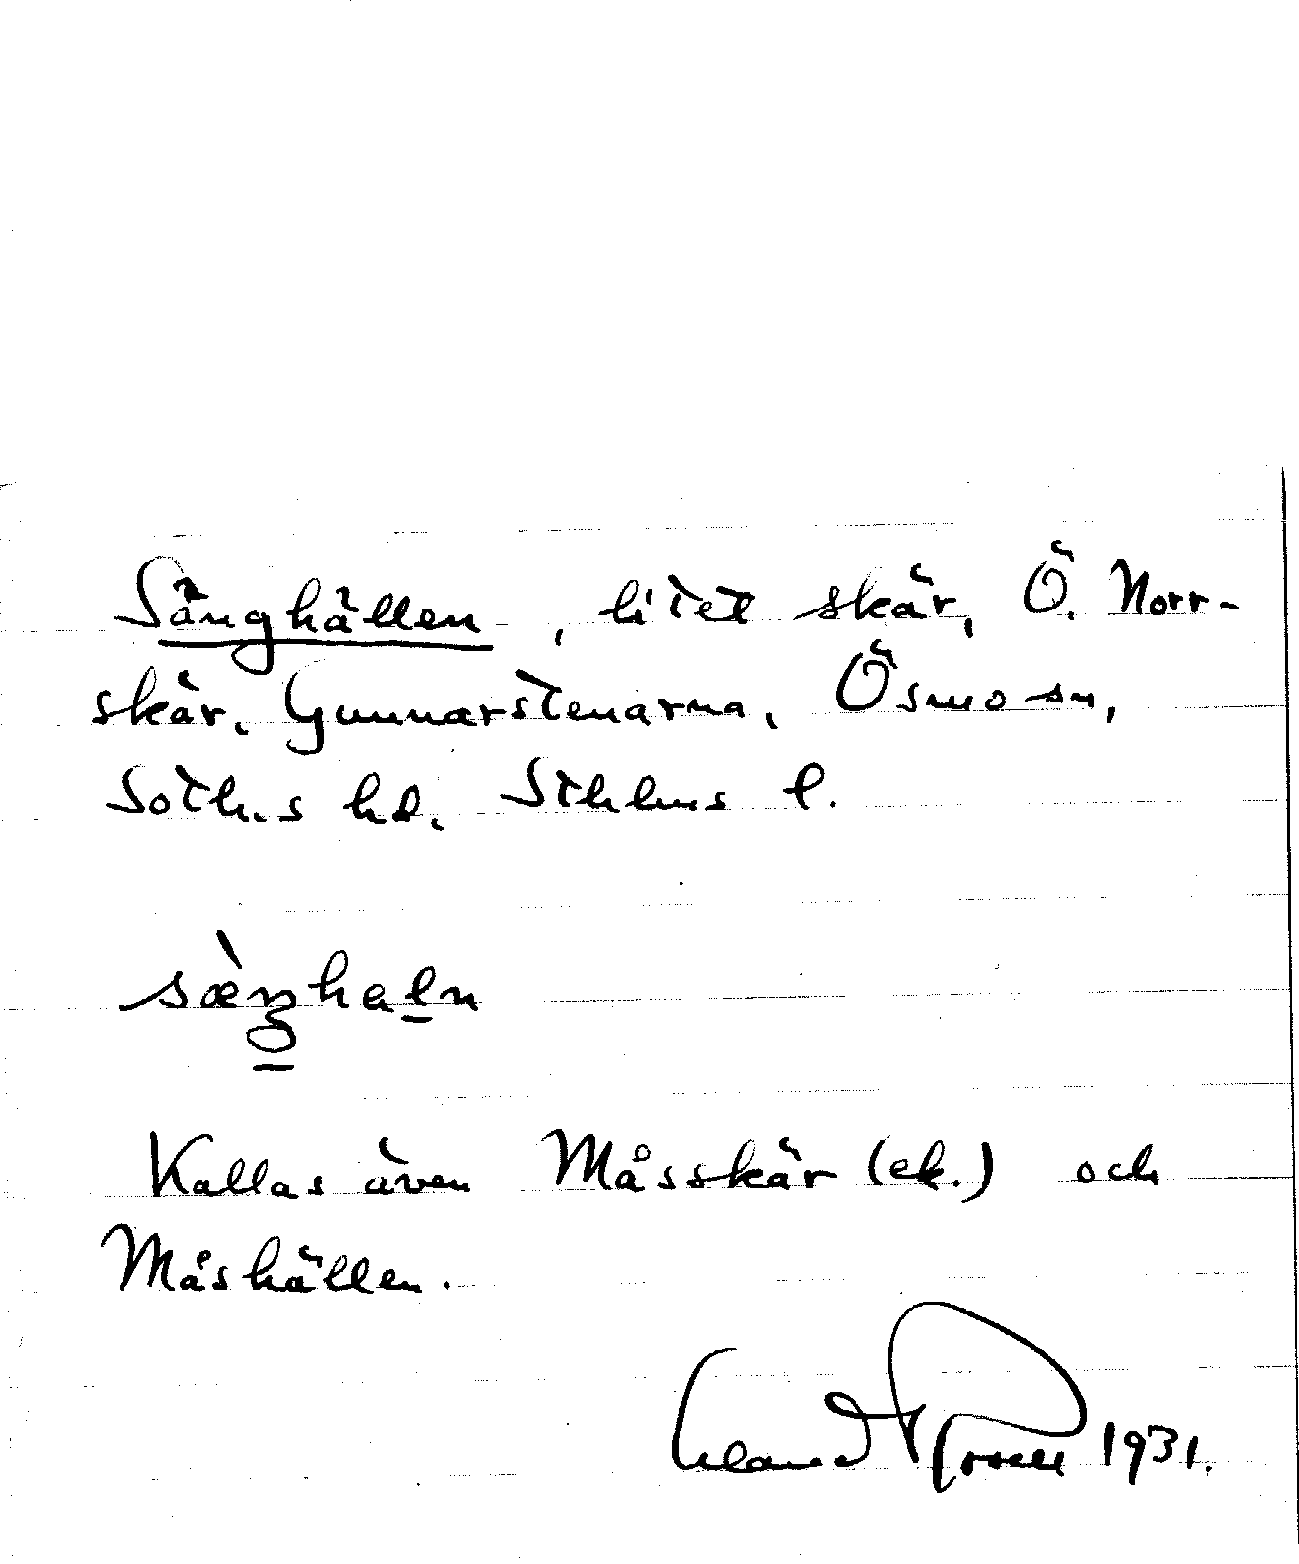 Sänghällen, litet skär, Ö. Norr-
skär, Gunnarstenarna, Ösmo sn,
Soth.s hd. Sthlms l.
sæ̀ŋhaln
Kallas även Måsskär (ek.) och
Måshällen.
Erland Rosell 1931.